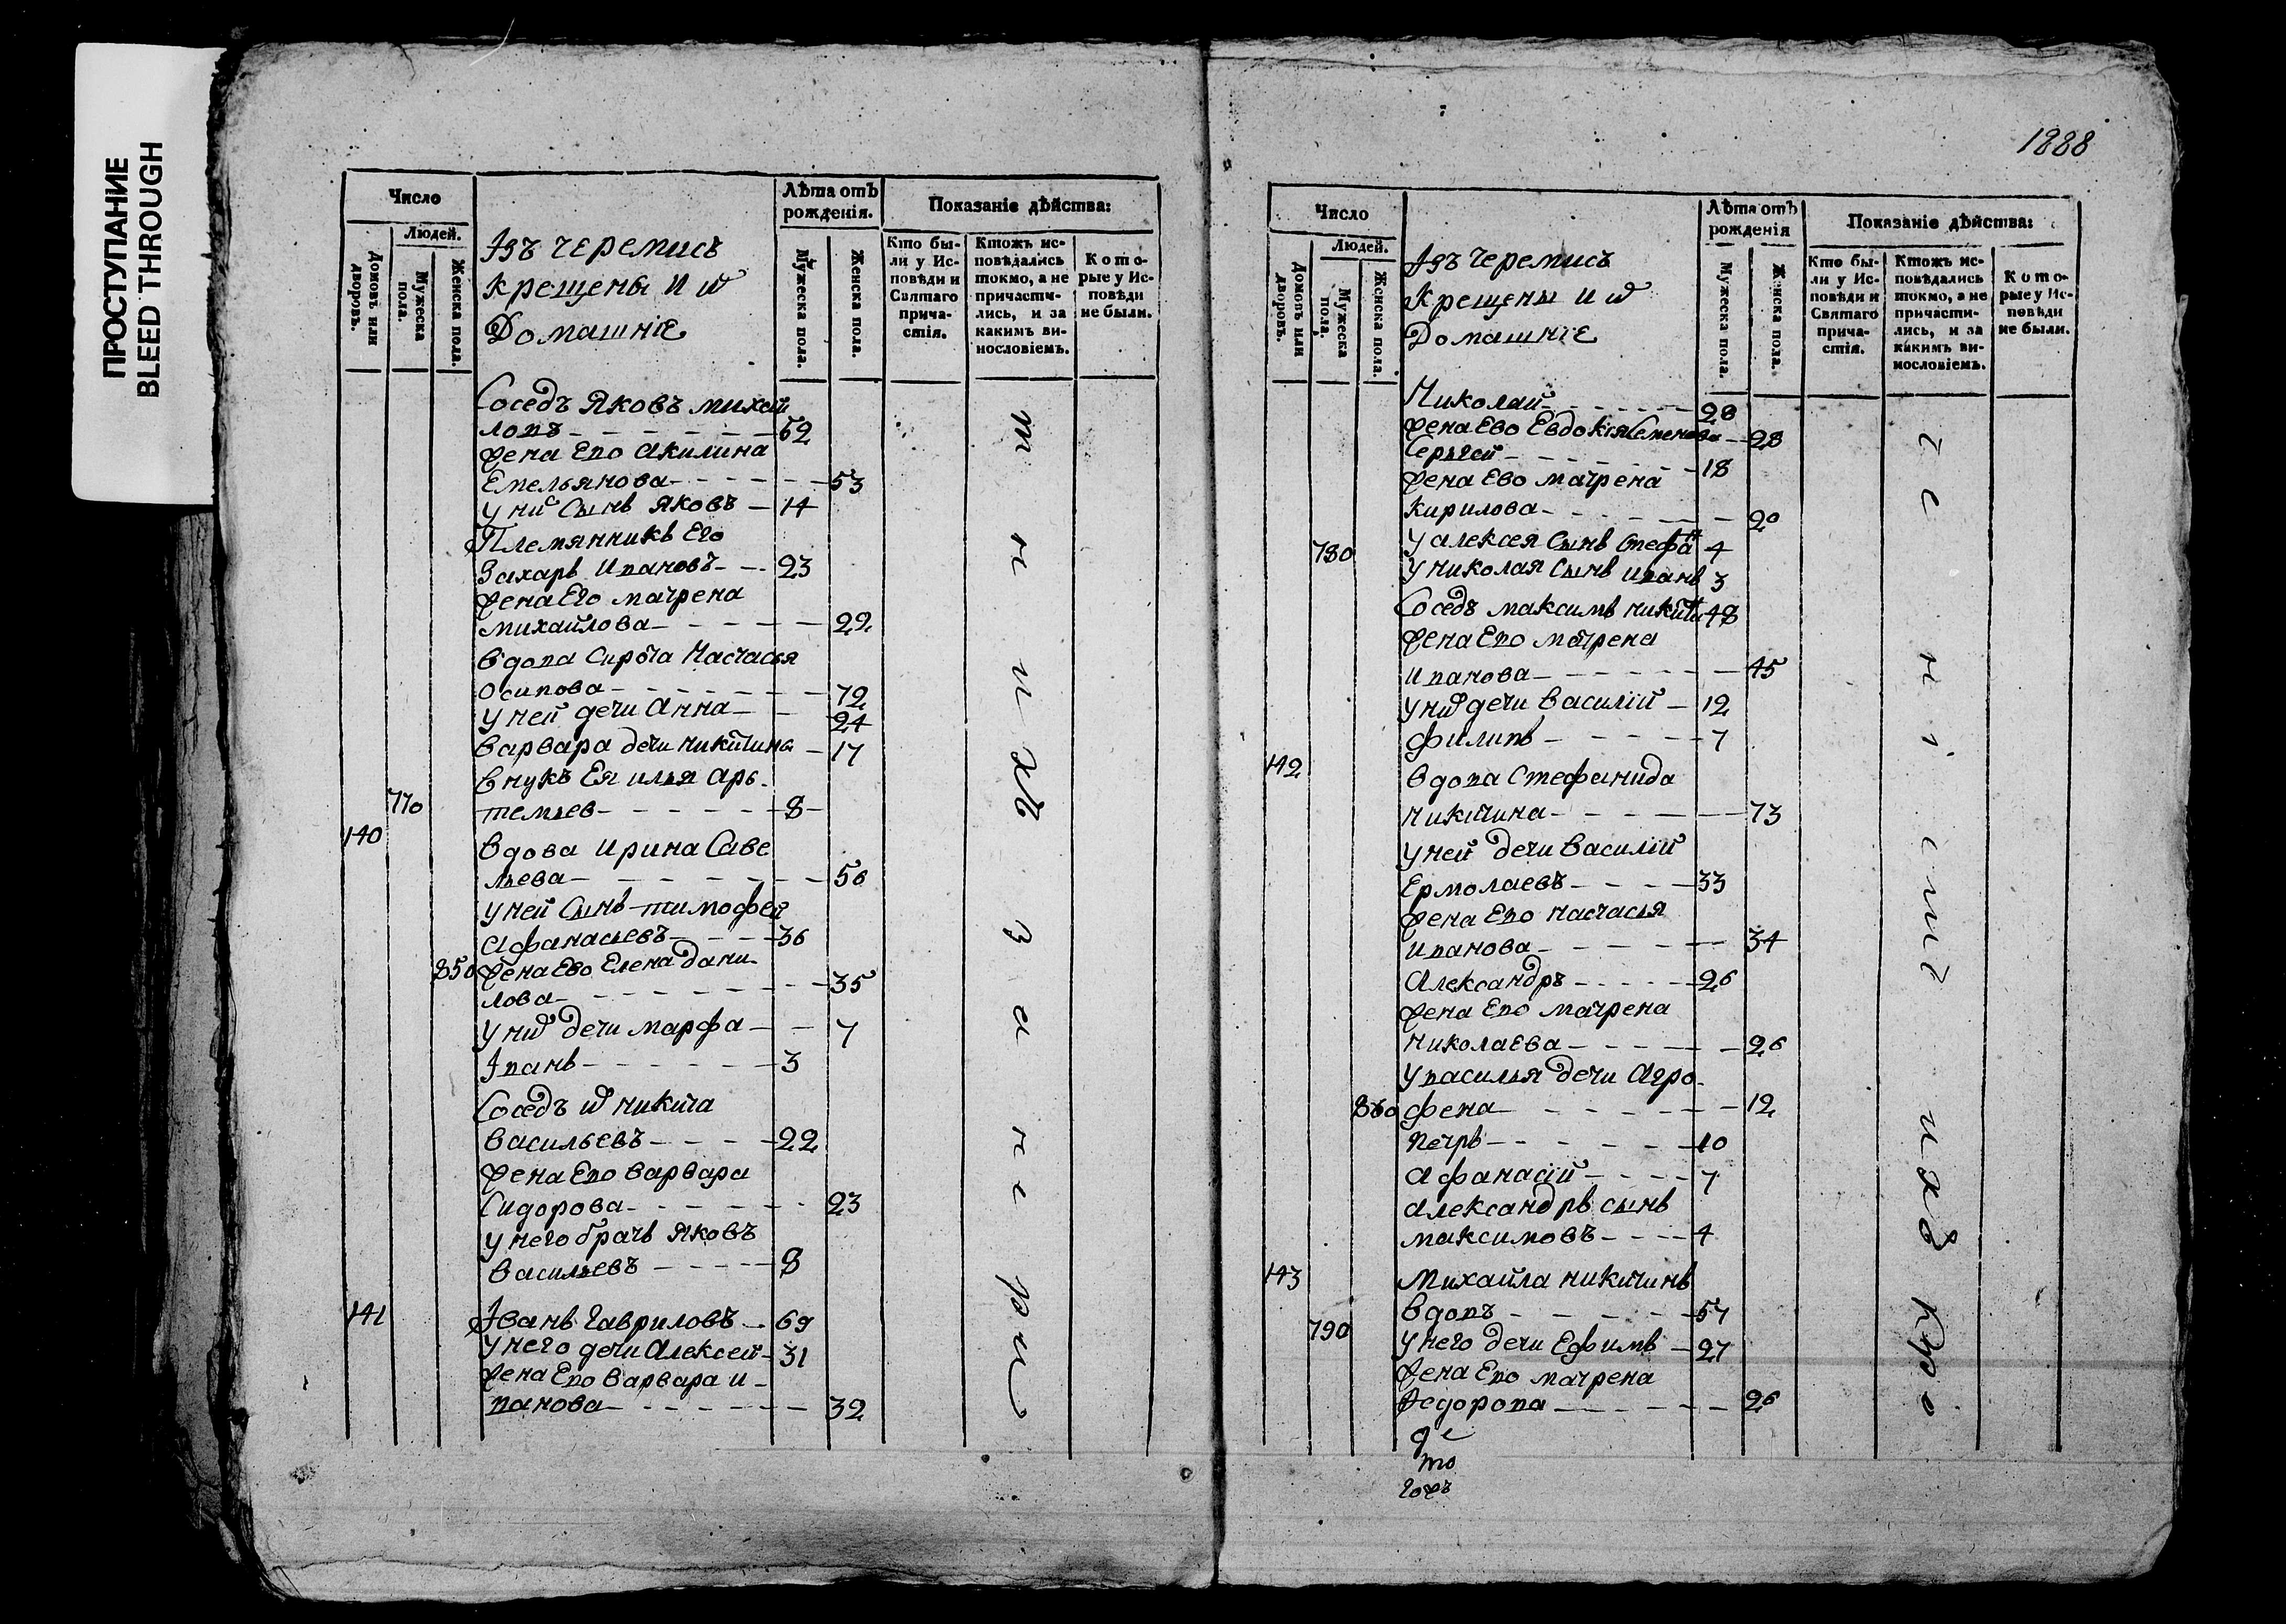 ПРОСТУПАНИЕ
BLEED THROUGH
Число
Людей.
Домовъ или дворовъ.
Мужеска пола.
Женска пола.
Изъ черемисъ
крещены и ѿ
Домашніе
Лѣта отъ рожденія.
Мужеска пола.
Женска пола.
Показаніе дѣйства:
Кто были у Исповѣди и Святаго причастія.
Ктожъ исповѣдались токмо, а не причастились, и за какимъ винословіемъ.
Которые у Исповѣди не были.
Соседъ Яковъ михай
ловъ 52
жена Ево акилина
Емельянова 53
у ни сынъ Яковъ 14
Племянникъ Его
Захаръ Ивановъ 23
жена Его матрена
михайлова 22
вдова сирота Настасья
Осипова 72
у ней дети Анна 24
варвара дети никитины 17
внукъ Ея илья арь
770 темьев 8
140 вдова ирина Саве
льева 56
у ней сынъ тимофей
афанасьевъ 36
850 жена Ево Елена дани
лова 35
у ниѿ дети марфа 7
Иванъ 3
Соседъ ѿ никита
васильевъ 22
жена Ево варвара
Сидорова 23
у него братъ Яковъ
васильевъ 8
141 Иванъ Гавриловъ 69
у него дети Алексеи 31
жена Ево варвара и
ванова 32
1888
Число
Людей.
Домовъ или дворовъ.
Мужеска пола.
Женска пола.
Изъ черемисъ
Крещены и ѿ
Домашніе
Лѣта отъ рожденія
Мужеска пола.
Женска пола.
Показаніе дѣйства:
Кто были у Исповѣди и Святаго причастія.
Ктожъ исповѣдались токмо, а не причастились, и за какимъ винословіемъ.
Которые у Исповѣди не были.
Николай 28
жена Ево Евдокія Семенова 28
Сергей 18
жена Ево матрена
кирилова 20
780 у алексея сынъ стефа 4
у николая сынъ иванъ 3
Соседъ максимъ никити 48
жена Ево матрена
иванова 45
у ниѿ дети василій 12
филипъ 7
142 вдова Стефанида
никитина 73
у ней дети василій
Ермолаевъ 33
жена Ево настасья
иванова 34
Александръ 26
жена Ево матрена
николаева 26
у василья дети Агро
860 фена 12
петръ 10
афанасій 7
александръ сынъ
максимовъ 4
143 Михайла никитинъ
вдовъ 57
790 у него дети Ефимъ 27
жена Ево матрена
Федорова 26
же
то
гожъ